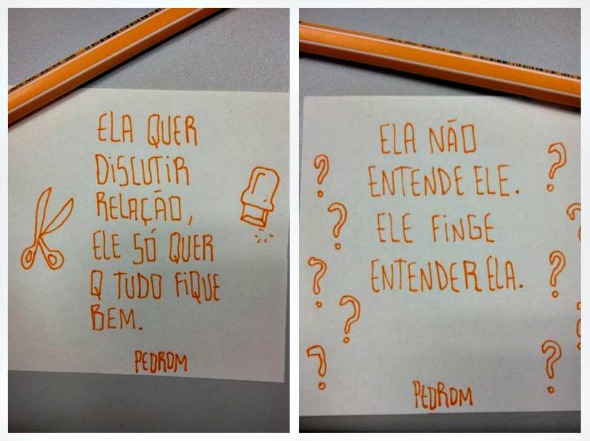 ELA QUER
DISCUTIR
RELAÇÃO,
ELE SÓ QUER
Q TUDO FIQUE
BEM.
PEDROM
ELA NÃO
ENTENDE ELE.
ELE FINGE
ENTENDER ELA.
PEDROM